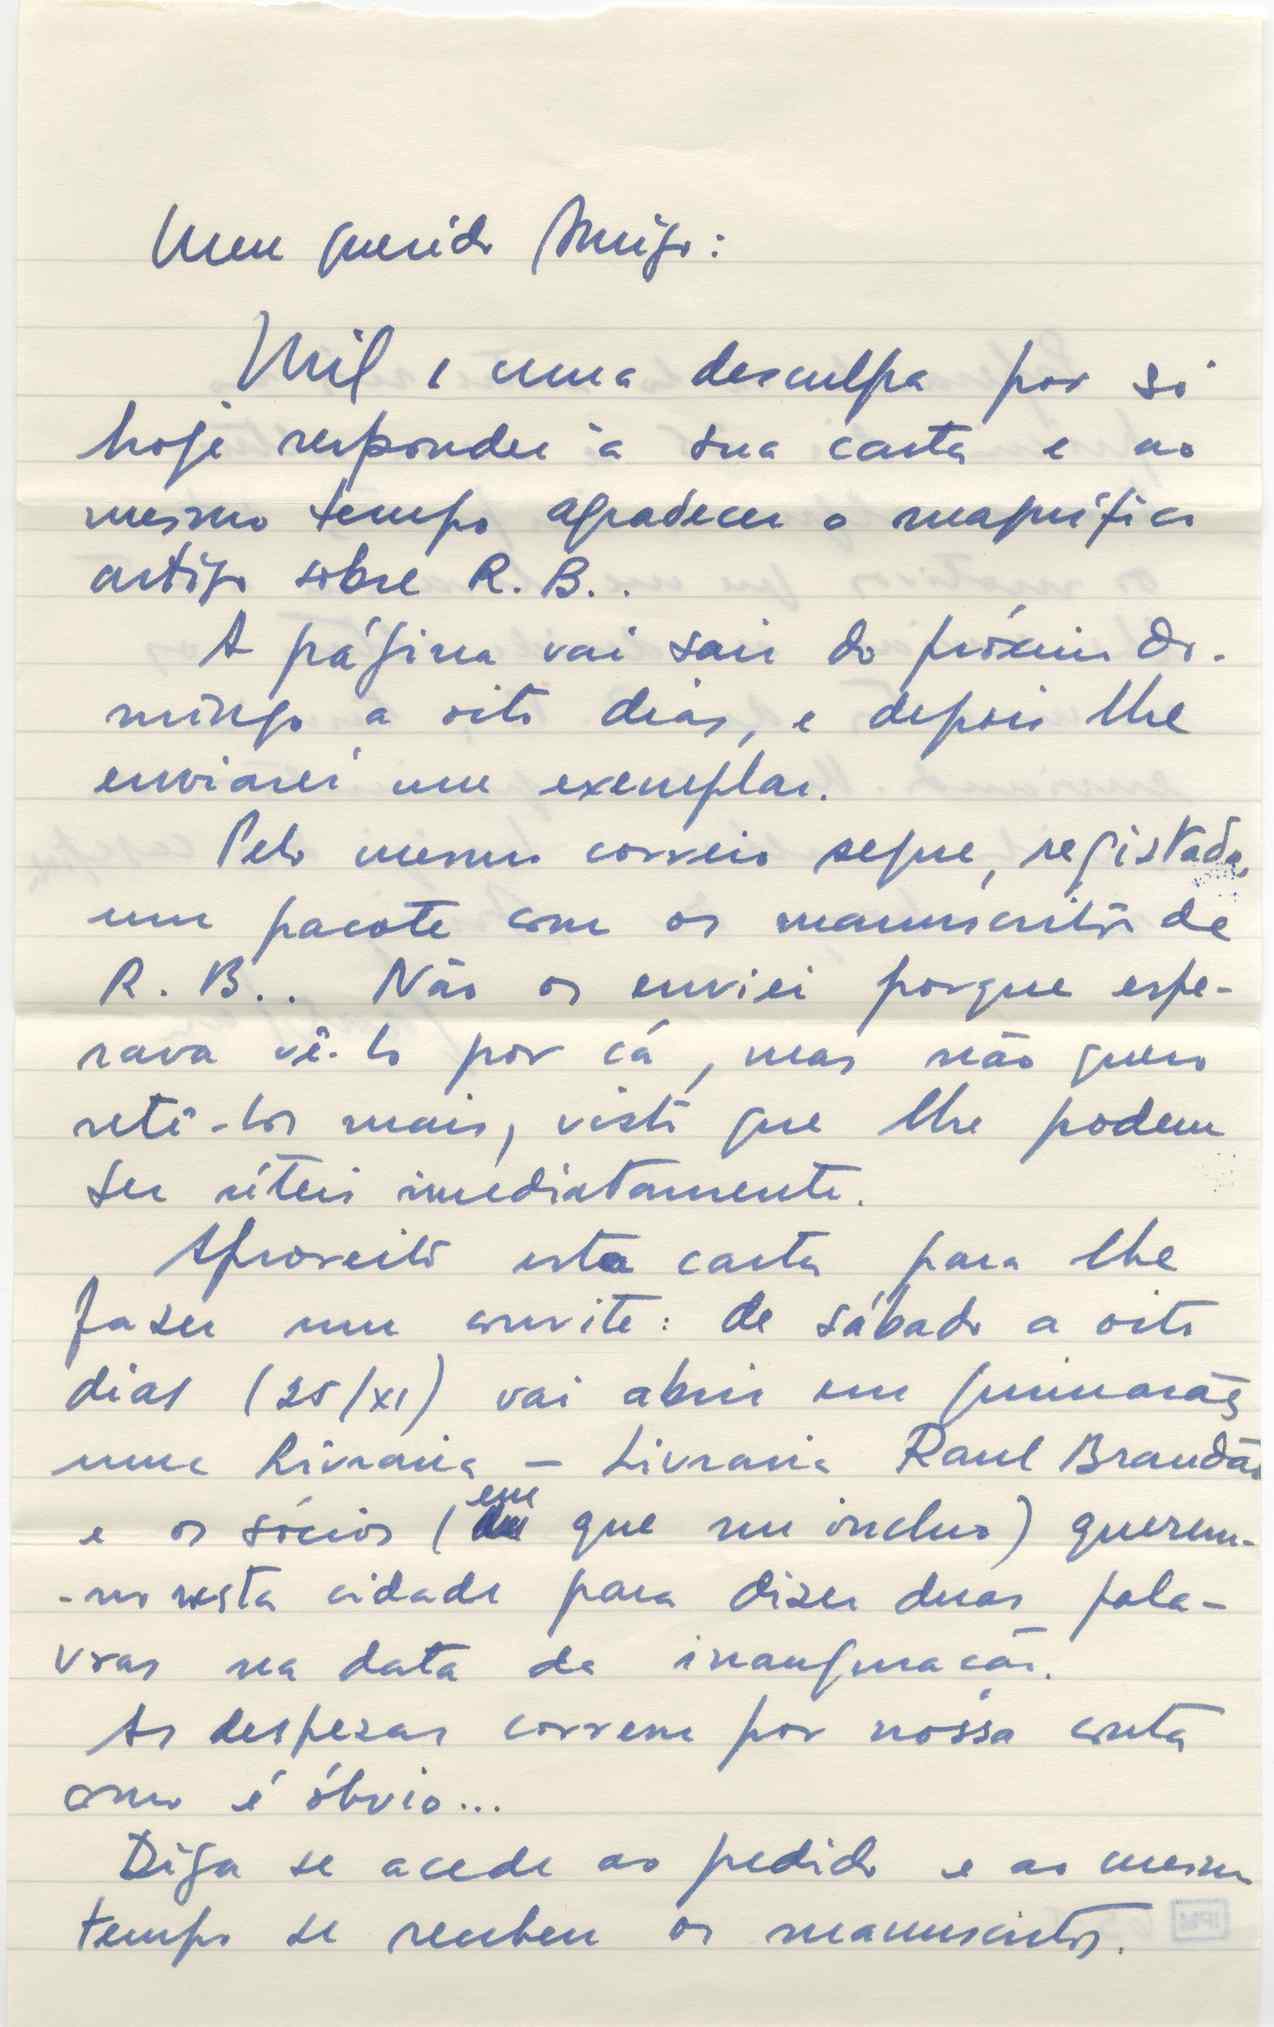 Meu querido Amigo:
Mil e uma desculpa por só
hoje responder à sua carta e ao
mesmo tempo agradecer o magnífico
artigo sobre R. B..
A página vai sair do próximo do-
mingo a oito dias, e depois lhe
enviarei um exemplar.
Pelo mesmo correio segue, registado,
um pacote com os manuscritos de
R. B.. Não os enviei porque espe-
rava vê-lo por cá, mas não quero
retê-los mais, visto que lhe podem
ser úteis imediatamente.
Aproveito esta carta para lhe
fazer um convite: de sábado a oito
dias (25/XI) vai abrir em Guimarães
uma Livraria — Livraria Raul Brandão
e os sócios (em que me incluo) querem-
-no nesta cidade para dizer duas pala-
vras na data da inauguração.
As despezas correm por nossa conta
como é óbvio...
Diga se acede ao pedido e ao mesmo
tempo se recebeu os manuscritos.